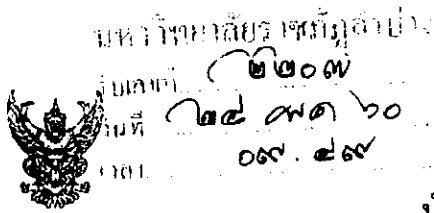 มหาวิทยาลัยราชภัฏลำปาง
รับเลขที่ ๒๒๐๗
วันที่ ๒๔ ๖๐
เวลา ๐๙.๔๙